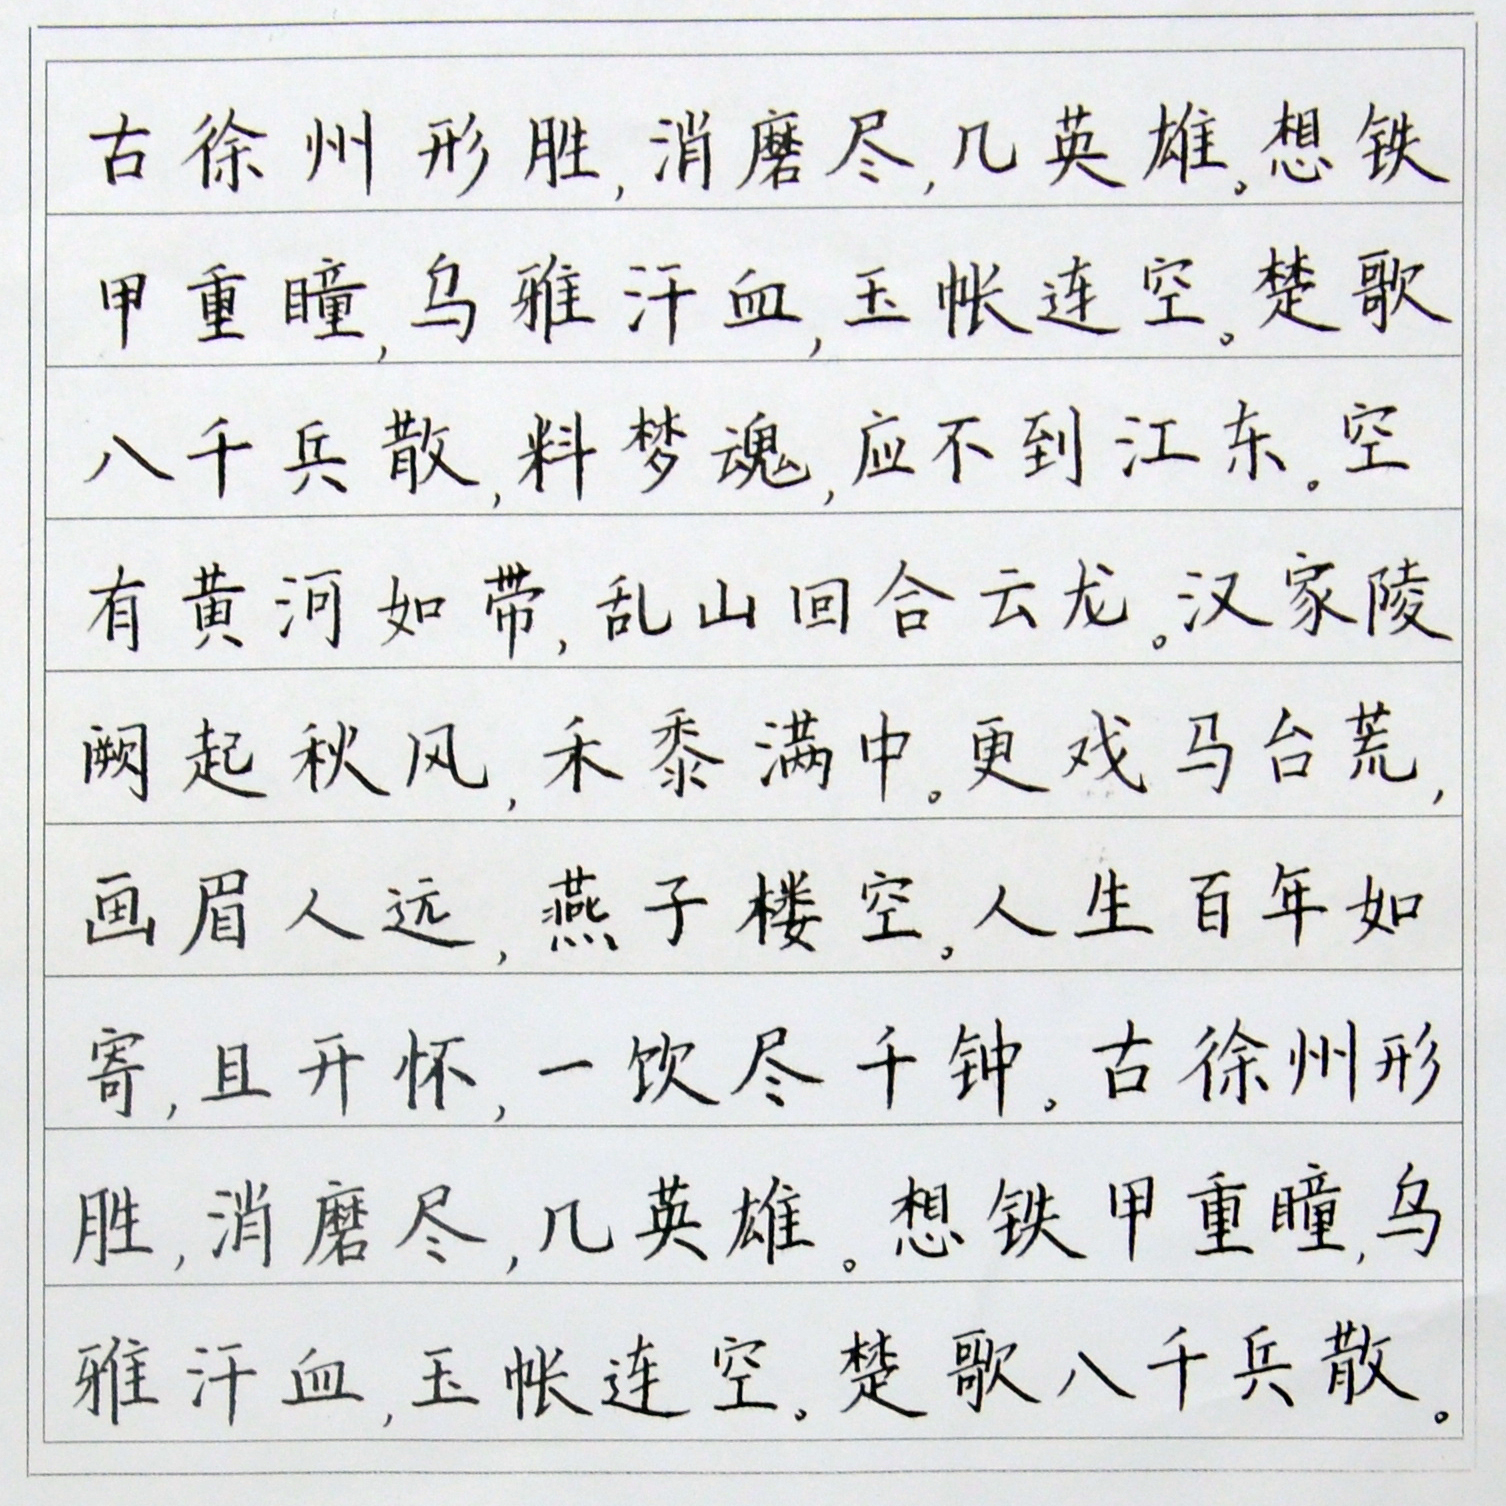 古徐州形胜,消磨尽,几英雄。想铁
甲重瞳,乌雅汗血,玉帐连空。楚歌
八千兵散,料梦魂,应不到江东。空
有黄河如带,乱山回合云龙。汉家陵
阙起秋风,禾黍满中。更戏马台荒,
画眉人远,燕子楼空。人生百年如
寄,且开怀,一饮尽千钟。古徐州形
胜,消磨尽,几英雄。想铁甲重瞳,乌
雅汗血,玉帐连空。楚歌八千兵散。